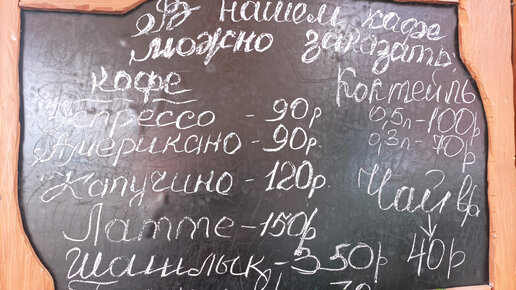 В нашем кафе
можно заказать
Кофе
Эспрессо - 90р.
Американо - 90р.
Капучино - 120р.
Латте - 150р
Шашлык - 350р
Коктейль
0,5л - 100р
0,3л - 70р
Чай
40р